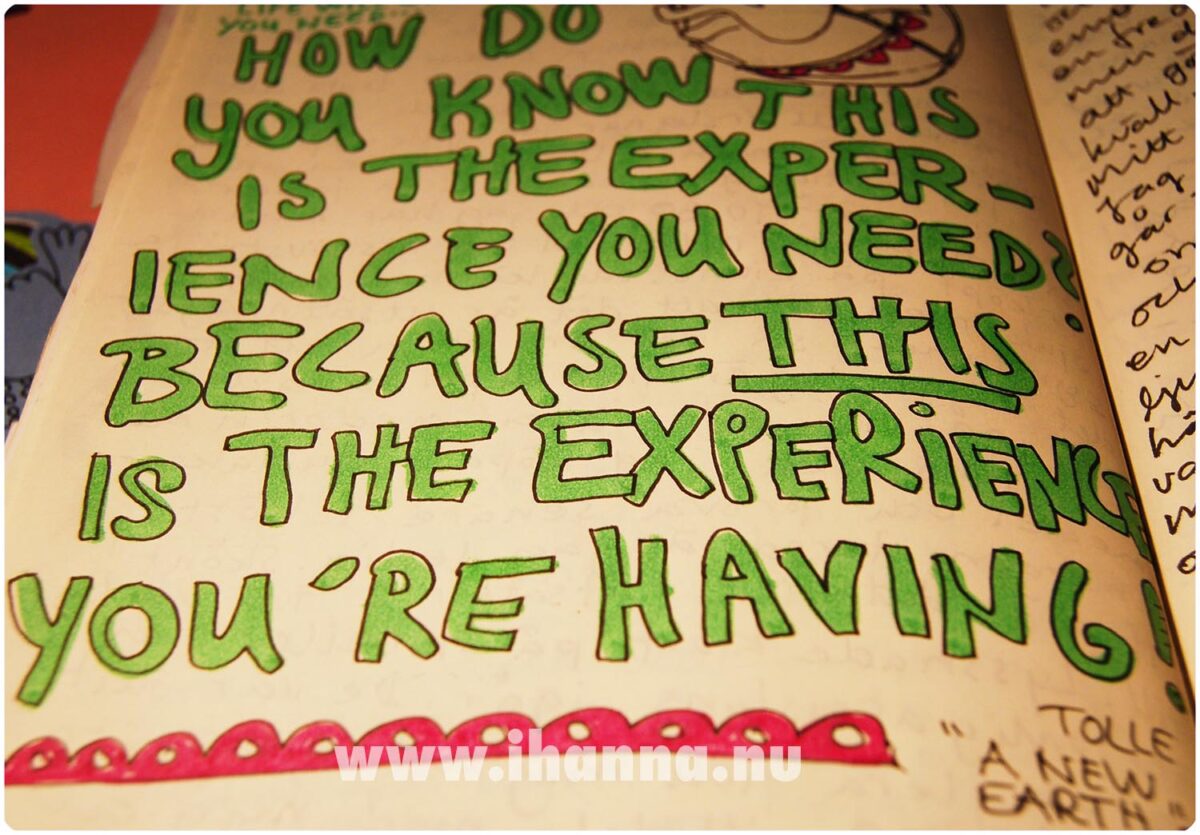 LIFE WILL
YOU NEED...
HOW DO
YOU KNOW THIS
IS THE EXPER-
IENCE YOU NEED?
BECAUSE THIS
IS THE EXPERIENCE
YOU'RE HAVING!
" TOLLE
A NEW
EARTH "
www.ihanna.nu
att
kväll
mitt
jag
går
och
en